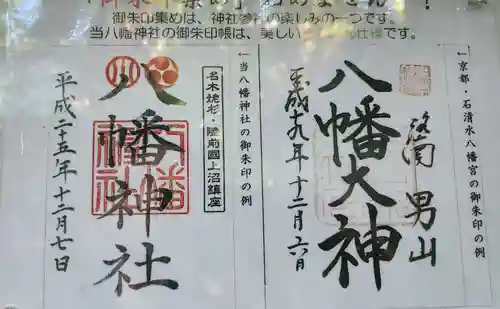 御朱印集めは、神社参拝の楽しみの一つです。
当八幡神社の御朱印帳は、美しい
仕様です。
←京都・石清水八幡宮の御朱印の例
男山
八幡大神
平成十九年十二月六日
←当八幡神社の御朱印の例
名木姥杉・陸前國上沼鎮座
八幡神社
平成二十五年十二月七日